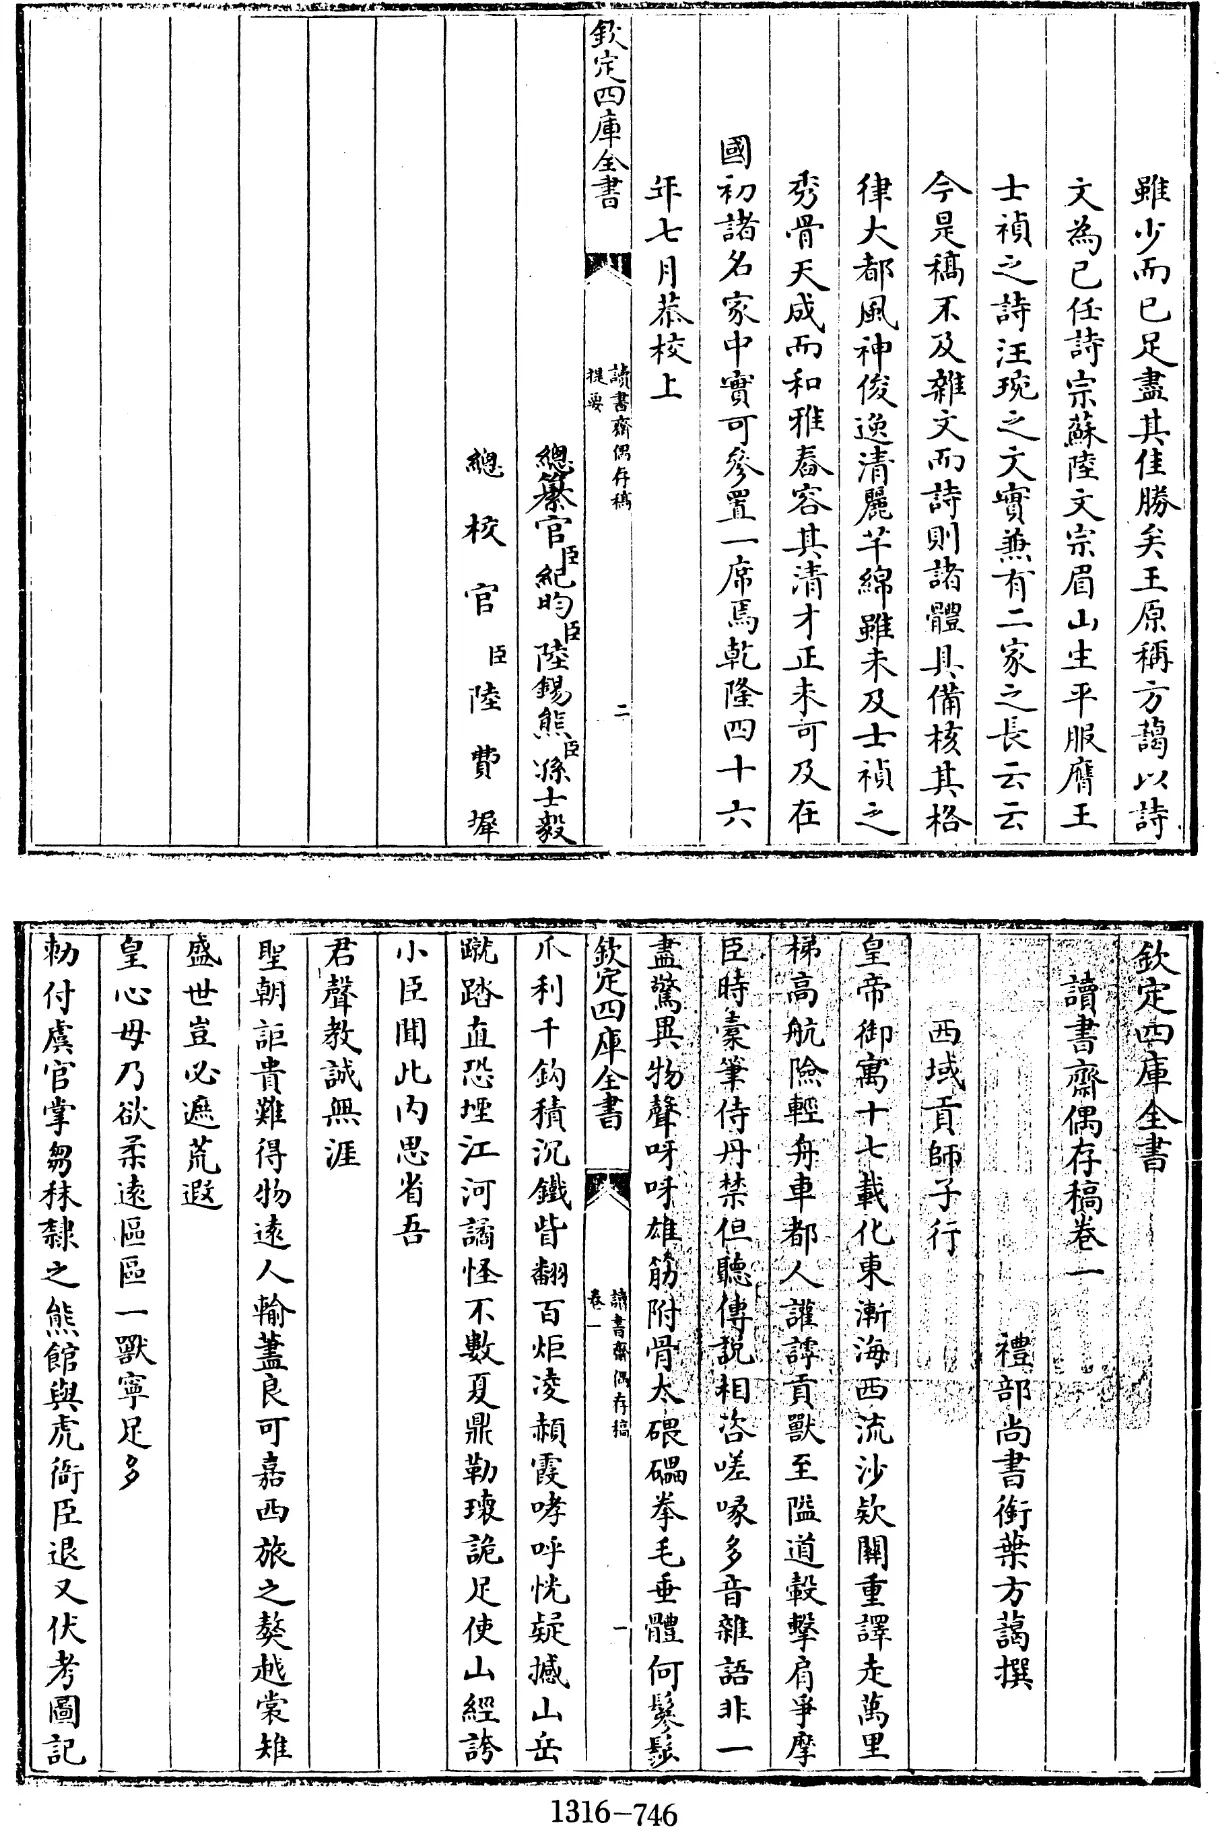 雖少而已足盡其佳勝矣王原稱方藹以詩
文為已任詩宗蘇陸文宗眉山生平服膺王
士禎之詩汪琬之文實兼有二家之長云云
今是稿不及雜文而詩則諸體具備核其格
律大都風神俊逸清麗芊綿雖未及士禎之
秀骨天成而和雅舂容其清才正未可及在
國初諸名家中實可參置一席焉乾隆四十六
年七月恭校上
欽定四庫全書
讀書齋偶存稿
提要
二
總纂官臣紀昀臣陸錫熊臣孫士毅
總校官臣陸費墀
欽定四庫全書
讀書齋偶存稿卷一
禮部尚書銜葉方藹撰
西域貢師子行
皇帝御寓十七載化東漸海西流沙欵關重譯走萬里
梯高航險輕舟車都人讙譁貢獸至隘道轂擊肩爭摩
臣時橐筆侍丹禁但聽傳說相咨嗟喙多音雜語非一
盡驚異物聲呀呀雄筋附骨太磈礧拳毛垂體何鬖髿
欽定四庫全書
讀書齋偶存稿
卷一
一
爪利千鈎積沉鐵眥翻百炬凌赬霞哮呼恍疑撼山岳
蹴踏直恐堙江河譎怪不數夏鼎勒瓌詭足使山經誇
小臣聞此内思省吾
君聲教誠無涯
聖朝詎貴難得物遠人輸藎良可嘉西旅之獒越裳雉
盛世豈必遮荒遐
皇心毋乃欲柔遠區區一獸寧足多
勅付虞官掌芻秣隸之熊館與虎衙臣退又伏考圖記
1316-746